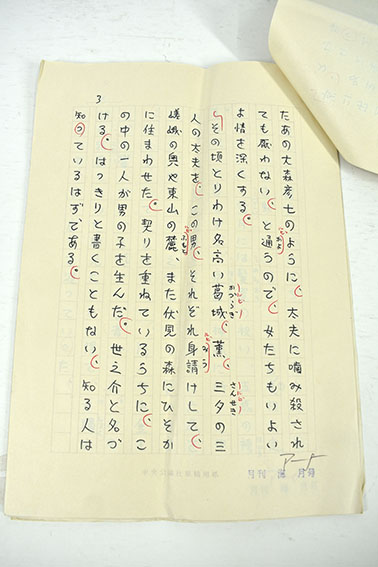 3
たあの大森彦七のように、太夫に噛み殺され
ても厭わない、と通うので、女たちもいよい
よ情を深くする。
その頃とりわけ名高い葛城、薫、三夕の三
かづらき
さんせき
人の太夫を、この男、それぞれ身請けして、
みう
嵯峨の奥や東山の麓、また伏見の森にひそか
ふもと
に住まわせた。契りを重ねているうちに、こ
の中の一人が男の子を生んだ。世之介と名づ
ける。はっきりと書くこともない、知る人は
知っているはずである。
アート
月刊
月号
中央公論社原稿用紙